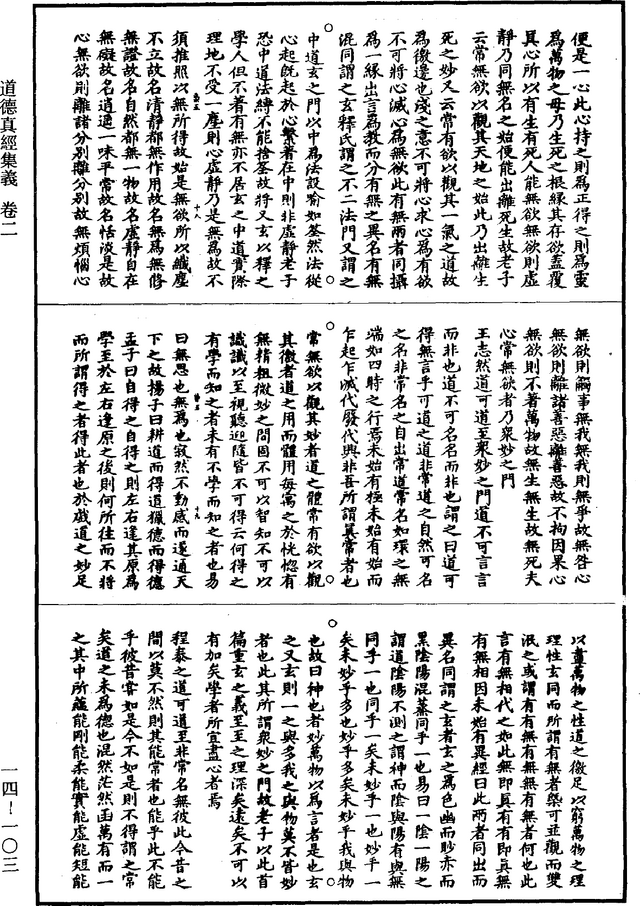 道德真經集義 卷二
一四－一〇三
便是一心此心持之則爲正得之則爲靈
爲萬物之母乃生死之根緣其存欲蓋覆
真心所以有生有死人能無欲無欲則虛
靜乃同無名之始便能出離死生故老子
云常無欲以觀其天地之始此乃出離生
死之妙又云常有欲以觀其一氣之道故
爲徼邊也淺之意不可將心求心爲有欲
不可將心滅心爲無欲此有無兩者同攝
爲一緣出言爲教而分有無之異名有無
混同謂之玄釋氏謂之不二法門又謂之
中道玄之門以中爲法設喻如筌然法從
心起既起於心繫著在中則非虛靜老子
恐中道法縛不能捨筌故將又玄以釋之
學人但不著有無亦不居玄之中道實際
理地不受一塵則心虛靜乃是無爲故不
須推照以無所得故始是無欲所以纖塵
不立故名清靜都無作用故名無爲無修
無證故名自然都無一物故名虛靜自在
無礙故名逍遙一味平常故名恬淡是故
心無欲則離諸分別離分別故無煩惱心
無欲則齅事無我無我則無爭故無咎心
無欲則離諸善惡離善惡故不拘因果心
無欲則不著萬物故無生無生故無死夫
心常無欲者乃衆妙之門
王志然道可道至衆妙之門道不可言言
而非也道不可名名而非也謂之曰道可
得無言乎可道之道非常道之自然可名
之名非常名之自出常道常名如環之無
端如四時之行焉未始有極未始有始而
乍起乍滅代廢代興非吾所謂真常者也
常無欲以觀其妙者道之體常有欲以觀
其徼者道之用而體用每寓之於恍惚有
無精粗微妙之間固不可以智知不可以
識識以至視聽迎隨皆不可得云何得之
有學而知之者未有不學而知之者也易
曰無思也無爲也寂然不動感而遂通天
下之故揚子曰耕道而得道獵德而得德
孟子曰自得之自得之則左右逢其原爲
學至於左右逢原之後則何所往而不將
而所謂得之者得此者也於戲道之妙足
以盡萬物之性道之徼足以窮萬物之理
理性玄同而所謂有無者槩可並觀而雙
泯之或謂有有無有無無有無者何也此
言有無相代之如此無即真有有即真無
有無相因未始有異經曰此兩者同出而
異名同謂之玄者玄之爲色幽而眇亦而
黑陰陽混蒸同乎一也易曰一陰一陽之
謂道陰陽不測之謂神而陰與陽有與無
同乎一也同乎一矣未妙乎一也妙乎一
矣未妙乎多也妙乎多矣未妙乎我與物
也故曰神也者妙萬物以爲言者是也玄
之又玄則一之與多我之與物莫不皆妙
者也此其所謂衆妙之門故老子以此首
篇重玄之義至至之理深矣遠矣不可以
有加矣學者所宜盡心者焉
程泰之道可道至非常名無彼此今昔之
間以莫不然則其能常者也能乎此不能
乎彼昔甞如是今不如是則不得謂之常
矣道之未爲德也混然茫然函萬有而一
之其中所蘊能剛能柔能實能虛能短能